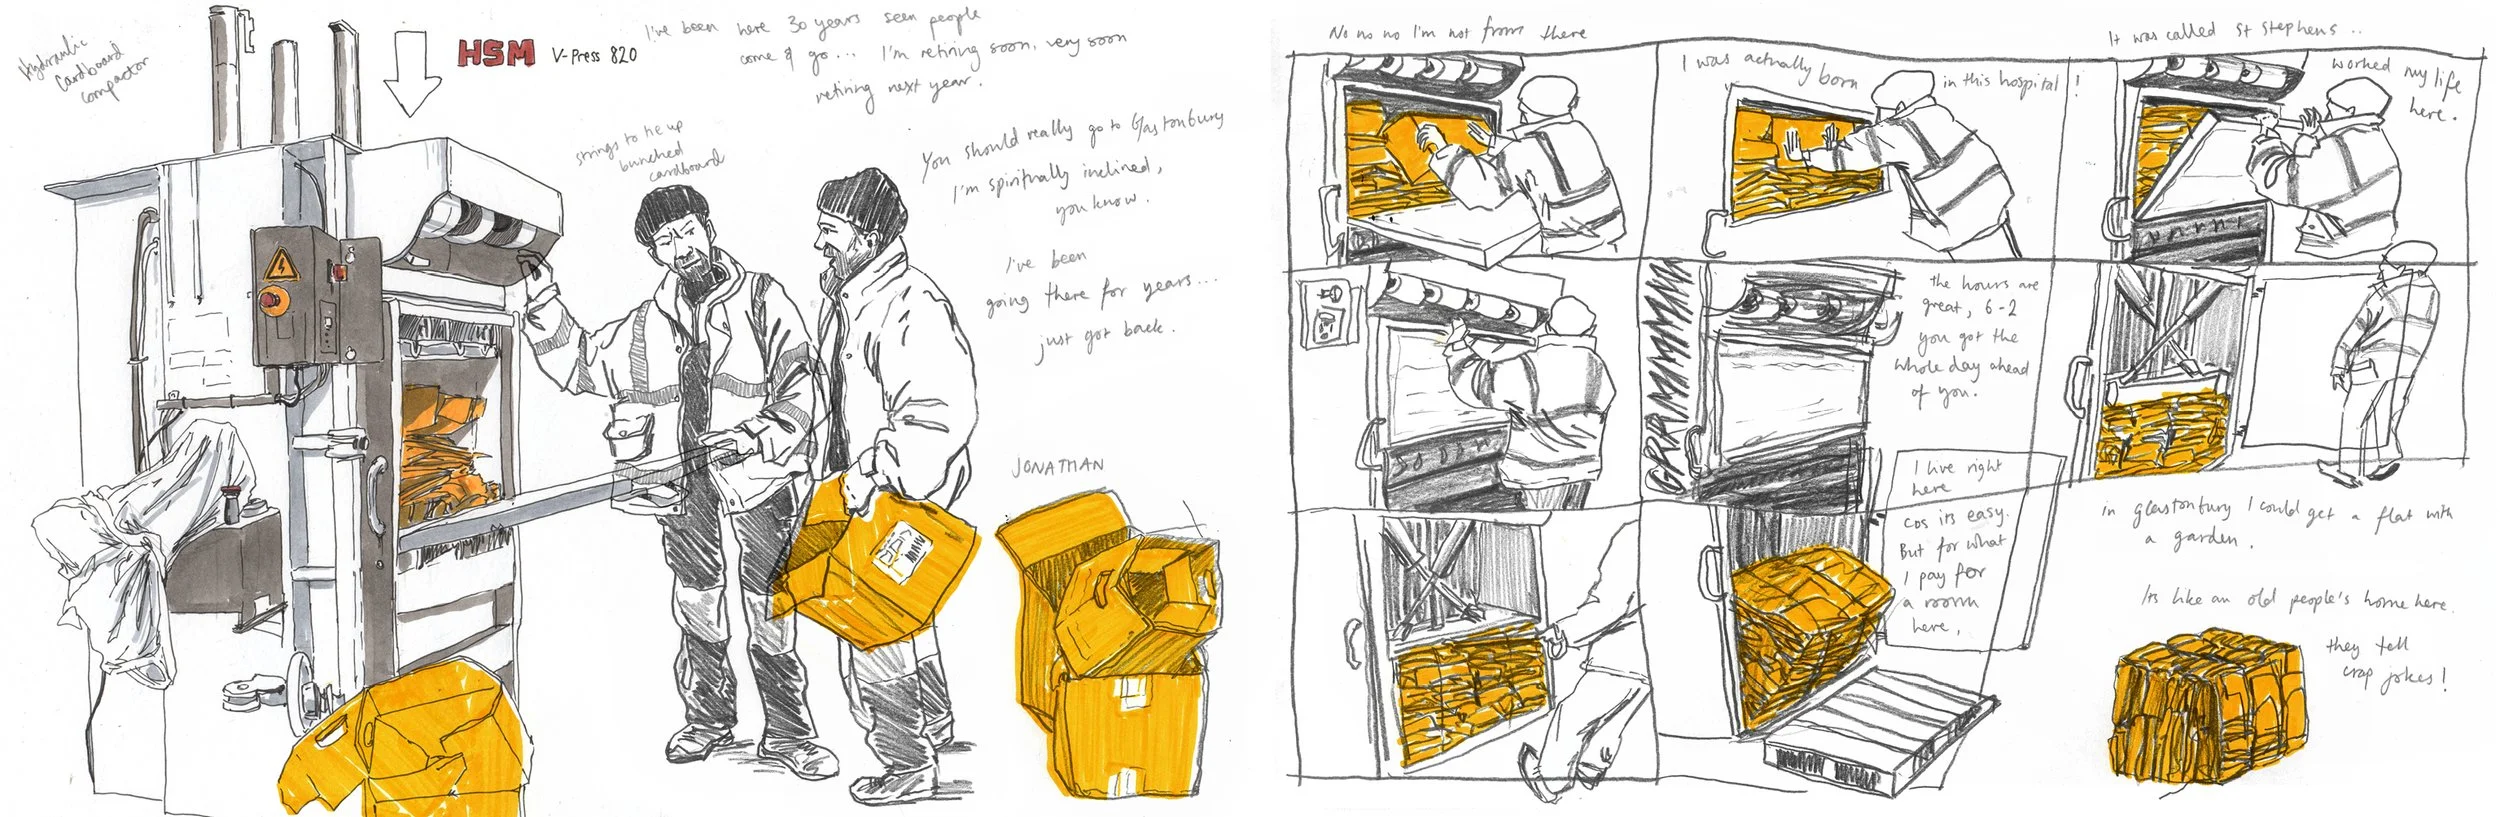 Hydraulic
Cardboard
compactor
HSM V-Press 820
I've been here 30 years seen people
come & go... I'm retiring soon, very soon
retiring next year.
strings to tie up
bunched
cardboard
You should really go to Glastonbury
I'm spiritually inclined,
you know.
I've been
going there for years...
just got back.
JONATHAN
No no no I'm not from there
I was actually born in this hospital!
It was called St Stephens..
worked my life
here.
GRRMMMMM
the hours are
great, 6-2
you got the
whole day ahead
of you.
I live right
here
cos its easy.
But for what
I pay for
a room
here,
in Glastonbury I could get a flat with
a garden.
Its like an old people's home here.
they tell
crap jokes!